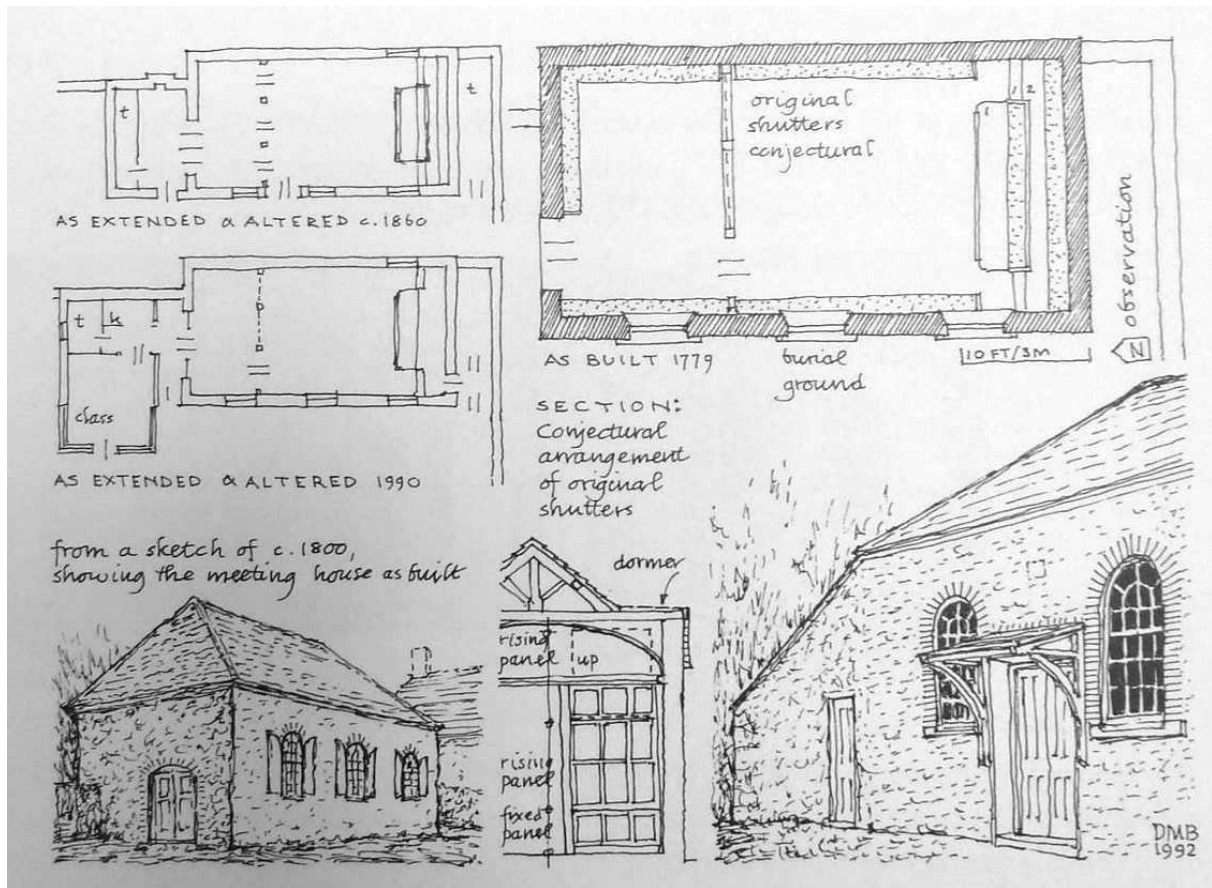 t
t
AS EXTENDED & ALTERED c.1860
t
k
class
AS EXTENDED & ALTERED 1990
original
shutters
conjectural
1
1
2
observation
N
AS BUILT 1779
burial
ground
10 FT/3M
SECTION:
Conjectural
arrangement
of original
shutters
from a sketch of c.1800,
showing the meeting house as built
dormer
rising
panel
up
rising
panel
fixed
panel
DMB
1992